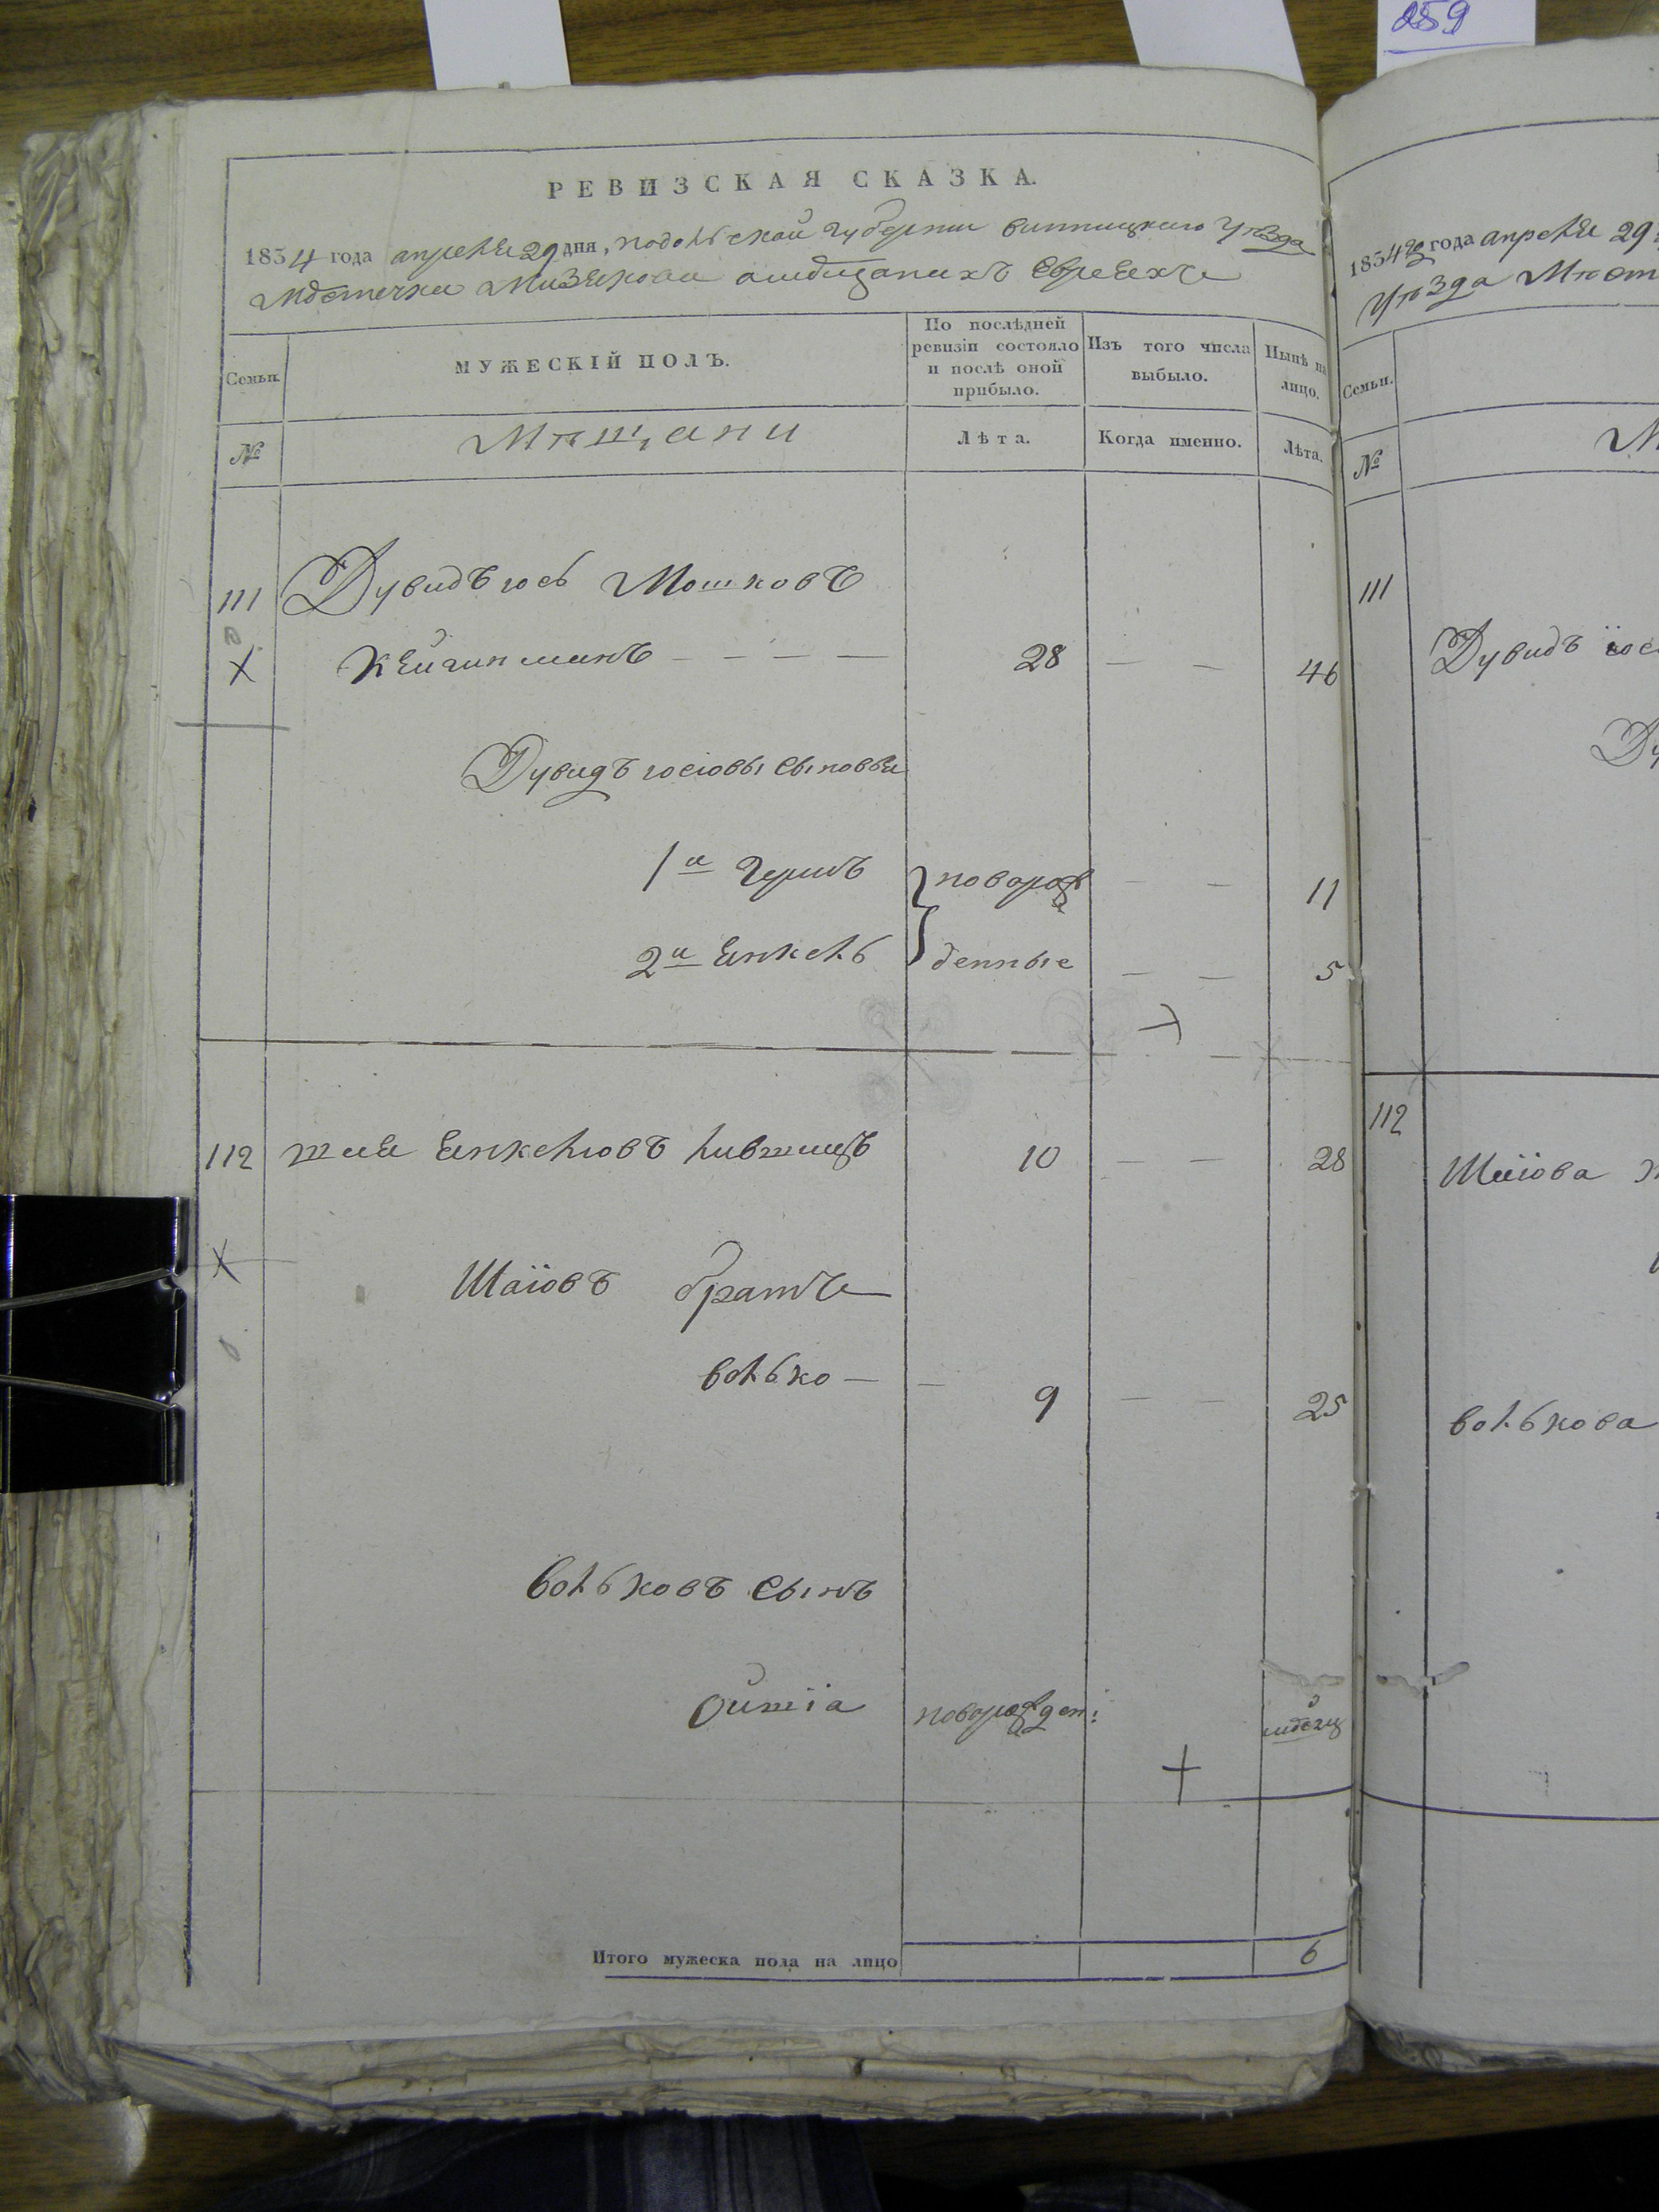 259
РЕВИЗСКАЯ СКАЗКА.
1834 года апреля 29 дня, подольской губернии винницкого уѣзда
мѣстечка Мизякова омѣщанахъ евреяхъ
Семьи.
МУЖЕСКІЙ ПОЛЪ.
По послѣдней ревизіи состояло и послѣ оной прибыло.
Изъ того числа выбыло.
Нынѣ на лицо.
№
Мѣщани
Лѣта.
Когда именно.
Лѣта.
111 Дувидъ іось Мошковъ
28 — — 46
Дувидъ іосіовы сыновья
1й Гершъ новорож — — 11
2й Янкель денные — — 5
112 шая Янкелювъ лившицъ 10 — — 28
Шаіовъ братъ
волько — — 9 — — 25
вольковъ сынъ
новорожден:
Итого мужеска пола на лицо 6
1834го года апреля 29
Уѣзда Мѣст
Семьи.
№
М
111
Дувидъ іос
Ду
112
Шаіова
волькова